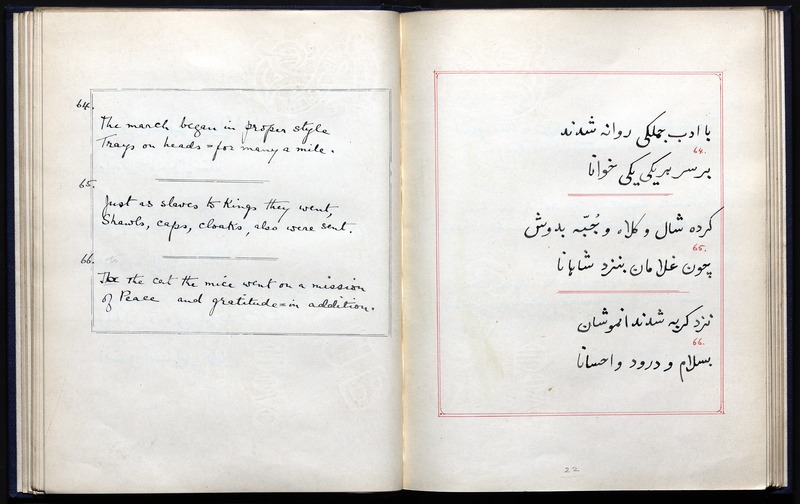 64.
The march began in proper style
Trays on heads = for many a mile.
65.
Just as slaves to Kings they went,
Shawls, caps, cloaks, also were sent.
66.
To the cat the mice went on a mission
of Peace and gratitude = in addition.
با ادب جملگی روانه شدند
64.
بر سر هر یکی یکی خوانا
کرده شال و کلاه و جُبّه بدوش
65.
چون غلامان بنزد شاهانا
نزد گربه شدند انموشان
66.
بسلام و درود و احسانا
22